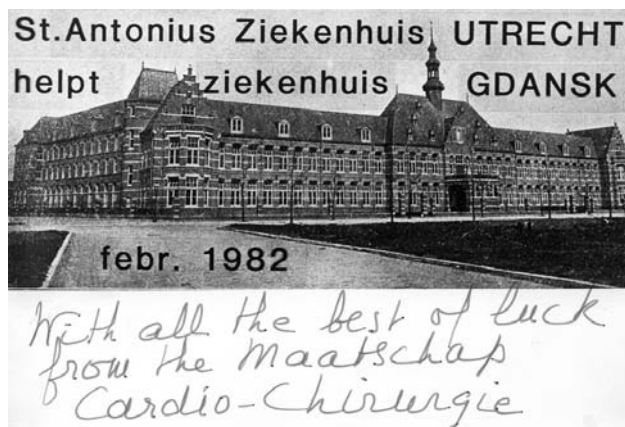 St.Antonius Ziekenhuis UTRECHT
helpt ziekenhuis GDANSK
febr. 1982
With all the best of luck
from the Maatschap
Cardio-Chirurgie